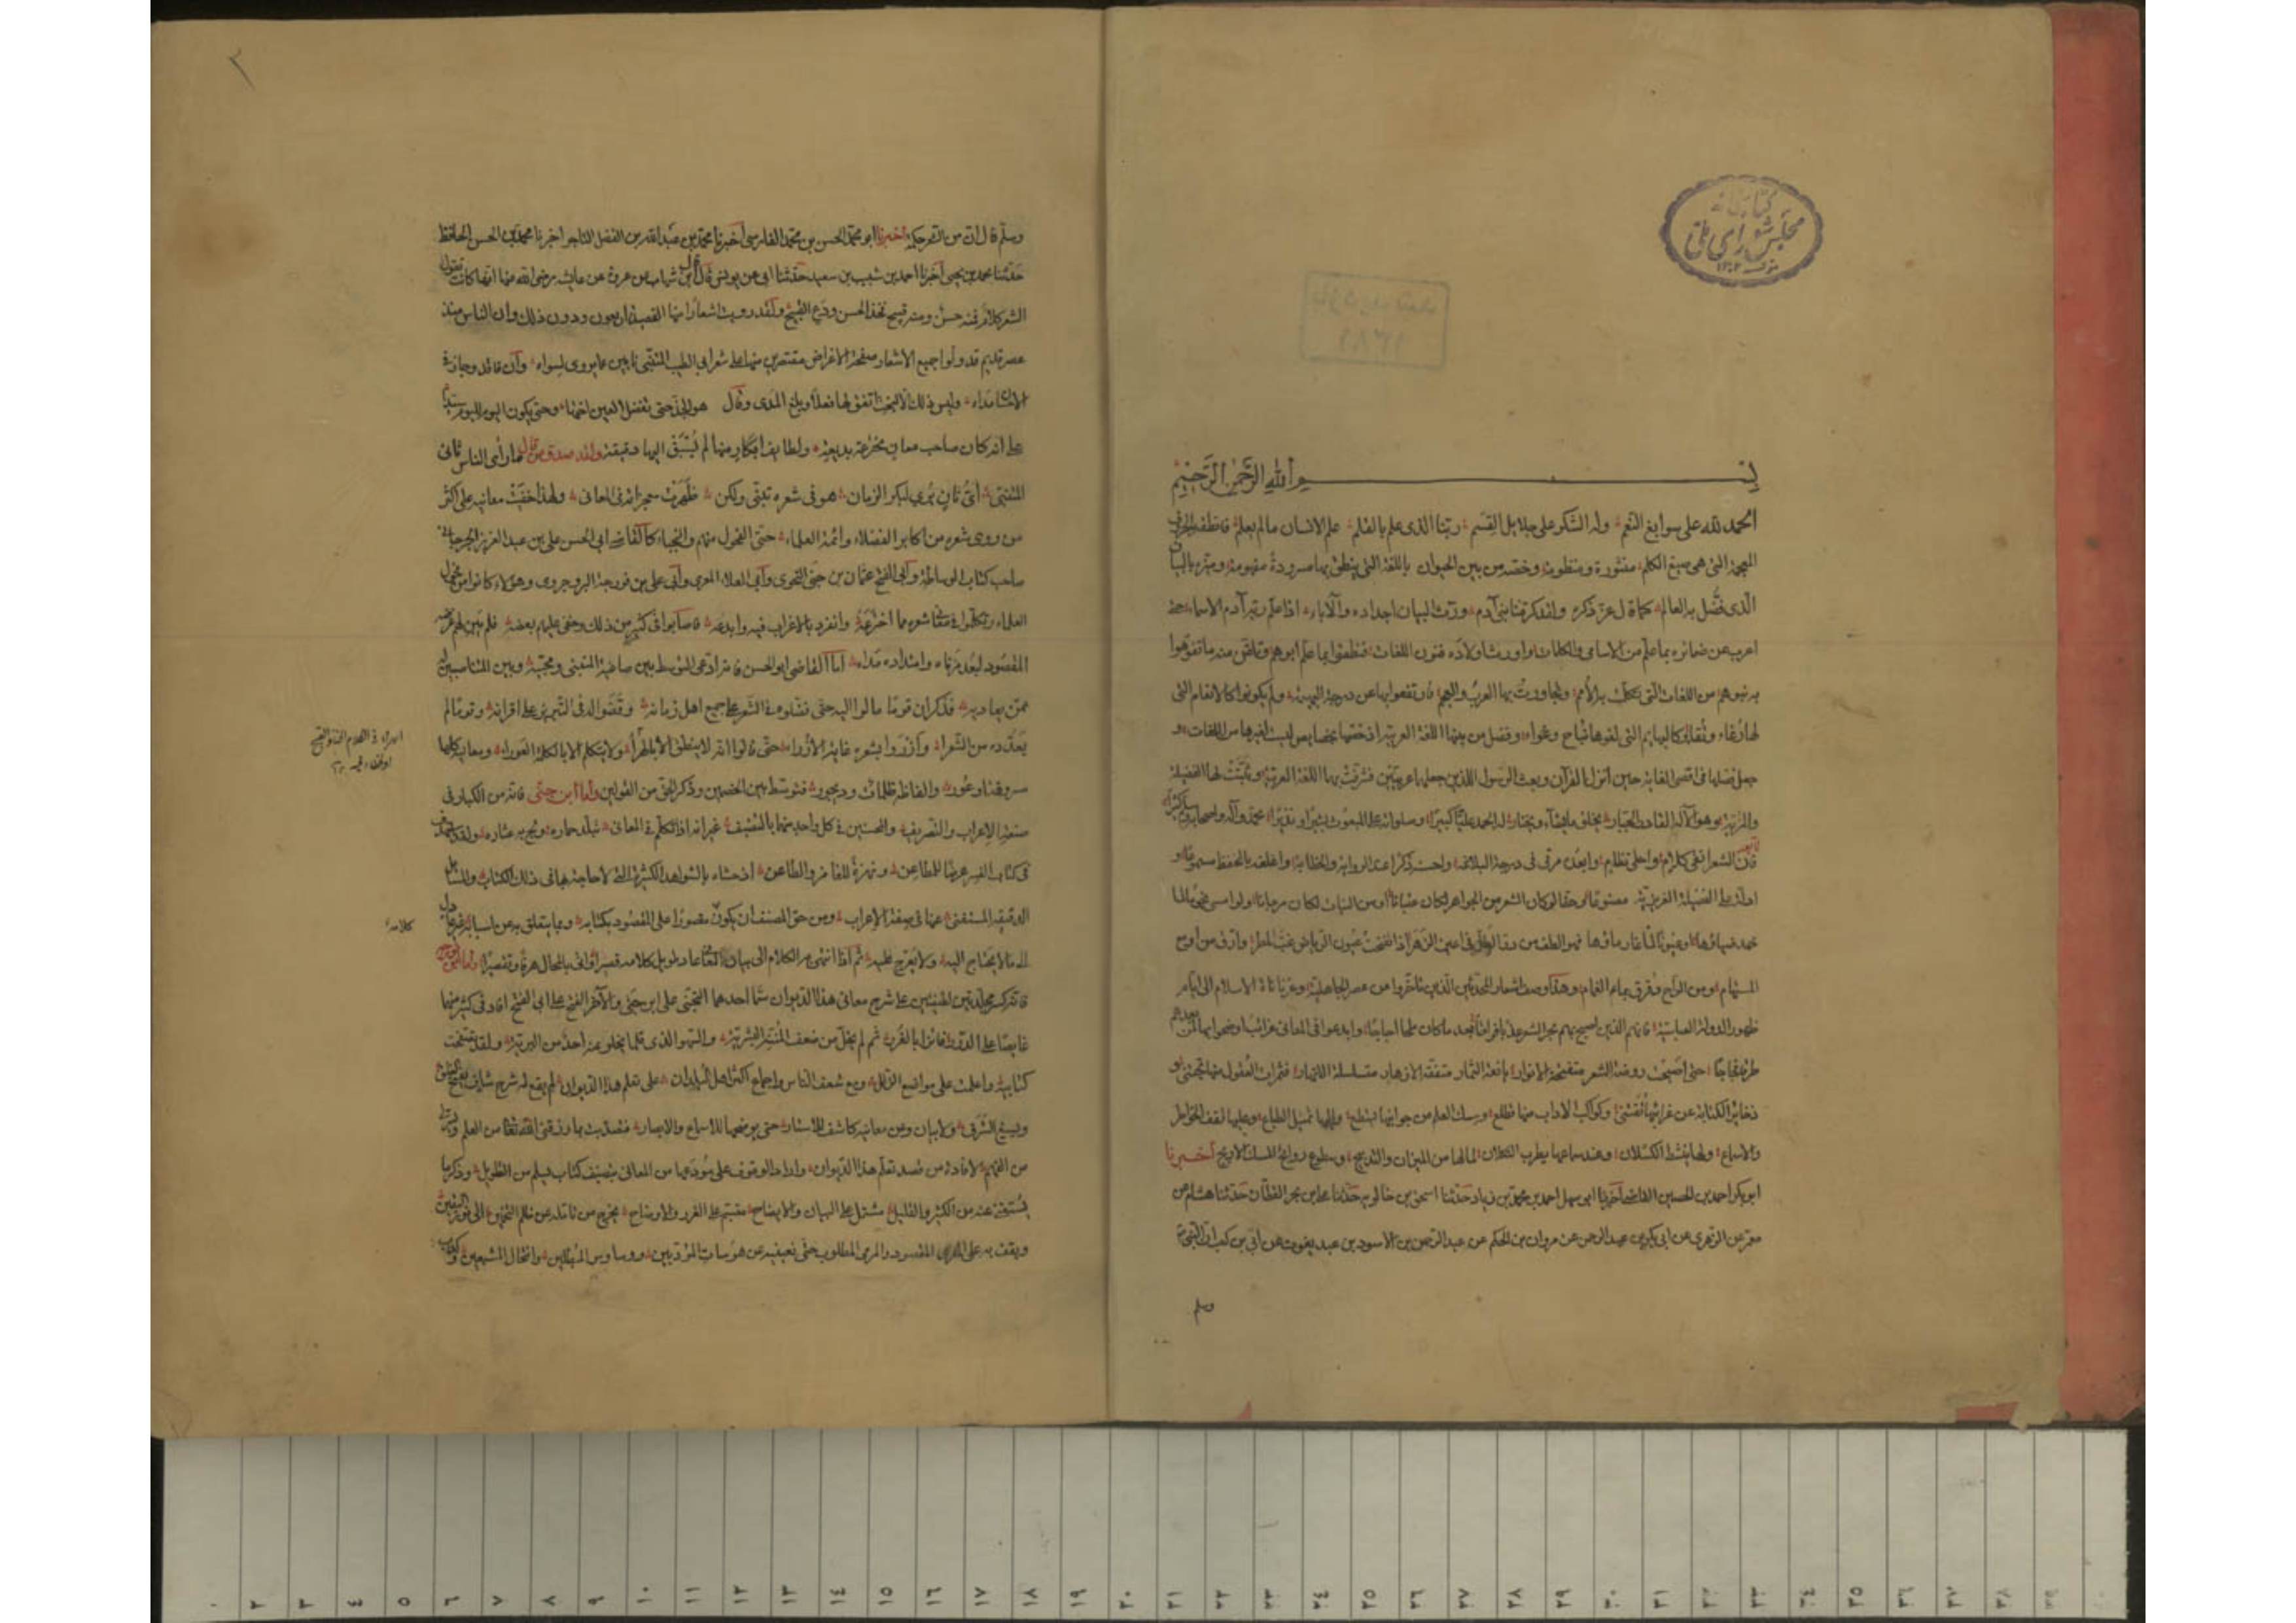 كتابخانه
مجلس شورای ملی
بسم الله الرحمن الرحيم
الحمد لله على سوابغ النعم وله الشكر على جلايل القسم ربنا الذى علم بالقلم علم الانسان ما لم يعلم
المعجمة التى هى صيغ الكلم منثورة ومنظومة وخصه من بين الحيوان باللغة التى ينطق بها مسرودة مفهومة وميزه بالبيان
الذى فضل به العالم كما قال عز ذكره ولقد كرمنا بنى آدم ورث البيان اجداده والآباء اذ اعلم ربه آدم الاسماء حتى
اعرب عن ضمائره بما علم من الاسامى والكلمات واورث اولاده فنون اللغات فنطقوا بما علم ابوهم وتلقن منه ما تفوهوا
به بنوهم من اللغات التى تكلمت بها الأمم وتحاورت بها العرب والعجم فارتفعوا بها عن درجة البهيمة ولم يكونوا كالانعام التى
لها رغاء وثغاء وكالبهايم التى لغوها نباح وعواء وفضل من بينها اللغة العربية اذ خصها بخصايص ليست لغيرها من اللغات و
جعل فضلها فى اقصى الغاية حين انزل بها القرآن وبعث الرسول اللذين جعلهما عربيين فشرفت بها اللغة العربية وثبتت لها الفضيلة
والمزية وهو الآله القادر المختار يخلق ما يشاء ويختار له الحمد عليا كبيرا وصلواته على المبعوث بشيرا ونذيرا محمد وآله واصحابه وسلم كثيرا
اما بعد فان الشعر ابقى كلام واحلى نظام وابعد مرقى فى درجة البلاغة واحسن ذكرا عند الرواية والخطابة واعلق بالحفظ مسموعا و
ادل على الفضيلة الغريزية مصنوعا وحقا لو كان الشعر من الجواهر لكان عقيانا او من النبات لكان ريحانا ولو امسى نجوما لما
خمد ضياؤها او عيونا لما غار ماؤها فهو الطف من در الطل فى اعين الزهر اذا تفتحت عيون الرياض غب المطر وارق من ادمع
المستهام ومن الراح رقرق بماء الغمام وهذا وصف اشعار المحدثين الذين تأخروا عن عصر الجاهلية وعن نأنأة الاسلام الى ايام
ظهور الدولة العباسية فانهم الذين اصبح بهم بحر الشعر عذبا فراتا بعد ما كان ملحا اجاجا وابدعوا فى المعانى غرائب اوضحوا بها لمن بعدهم
طرقا فجاجا حتى اصبحت روضة الشعر متفتحة الانوار يانعة الثمار متفتقة الازهار متسلسلة الانهار فثمرات العقول منها تجتنى و
ذخاير الكتابة عن غرائبها تقتنى وكواكب الاداب منها تطلع ومسك العلم من جوانبها يسطع واليها تميل الطباع وعليها تقف الخواطر
والاسماع ولها ينشط الكسلان وعند سماعها يطرب الثكلان لما لها من المزان والتدبيج وسطوع روائح المسك الاريج أخبرنا
ابو بكر احمد بن الحسين القاضى اخبرنا ابو سهل احمد بن محمد بن زياد حدثنا اسحق بن خالويه حدثنا على بن بحر القطان حدثنا هشام عن
معمر عن الزهرى عن ابى بكر بن عبد الرحمن عن مروان بن الحكم عن عبد الرحمن بن الاسود بن عبد يغوث عن ابى بن كعب ان النبى ص
وسلم
٢
وسلم قال ان من الشعر حكمة اخبرنا ابو محمد الحسن بن محمد الفارسى أخبرنا محمد بن عبد الله بن الفضل التاجر اخبرنا محمد بن الحسن الحافظ
حدثنا محمد بن يحيى أخبرنا احمد بن شبيب بن سعيد حدثنا ابى عن يونس قال قال ابن شهاب عن عروة عن عايشة رضى الله عنها انها كانت تقول
الشعر كلام فمنه حسن ومنه قبيح فخذ الحسن ودع القبيح ولقد رويت اشعارا منها القصيدة اربعون ودون ذلك وان الناس منذ
عصر قديم قد ولوا جميع الاشعار صفحة الاعراض مقتصرين منها على شعر ابى الطيب المتنبى نابين عما يروى لسواه وان فاته وجاز فى
الاحسان مداه وليس ذلك الا لبخت اتفق لها فعلا وبلغ المدى وقال هو الجد حتى تفضل العين اختها وحتى يكون اليوم لليوم سيدا
على انه كان صاحب معان مخترعة بديعة ولطايف ابكار منها لم يسبق اليها دقيقة ولقد صدق من قال ما رأى الناس ثانى
المتنبى أى ثان يرى لبكر الزمان هو فى شعره تنبى ولكن ظهرت معجزاته فى المعانى ولهذا خفيت معانيه على اكثر
من روى شعره من اكابر الفضلاء وائمة العلماء حتى الفحول منهم والنجباء كالقاضى ابى الحسن على بن عبد العزيز الجرجانى
صاحب كتاب الوساطة وابى الفتح عثمان بن جنى النحوى وأبى العلاء المعرى وأبى على بن فورجة البروجردى وهؤلاء كانوا من فحول
العلماء وتكلموا فى معانى شعره مما اخترعه وانفرد بالاغراب فيه وابدعه فاصابوا فى كثير من ذلك وخفى عليهم بعضه فلم يتبين لهم غرضه
المقصود لبعد مرماه وامتداد مداه اما القاضى ابو الحسن فانه ادعى التوسط بين صاغية المتنبى ومحبيه وبين المناصبين له
ممن يعاديه فذكر ان قوما مالوا اليه حتى فضلوه فى الشعر على جميع اهل زمانه وقضوا له فى التبريز على اقرانه وقوما لم
يعدوه من الشعراء وازروا بشعره غاية الازراء حتى قالوا انه لا ينطق الا بالهراء ولا يتكلم الا بالكلمة العوراء ومعانيه كلها
مسروقة او عور والفاظه ظلمات وديجور فتوسط بين الخصمين وذكر الحق من القولين واما ابن جنى فانه من الكبار فى
صنعة الاعراب والتصريف والمحسنين فى كل واحد منهما بالتصنيف غير انه اذا تكلم فى المعانى تبلد حماره ولج به عثاره ولقد استهدف
فى كتاب الفسر غرضا للمطاعن ونهزة للغامز والطاعن اذ حشاه بالشواهد الكثيرة التى لا حاجة بها فى ذلك الكتاب والمسائل
الدقيقة المستغنى عنها فى صنعة الاعراب ومن حق المصنف ان يكون مقصورا على المقصود بكتابه وما يتعلق به من اسبابه غير عادل
الى ما لا يحتاج اليه ولا يعرج عليه ثم اذا انتهى به الكلام الى بيان المعانى عاد طويل كلامه قصيرا واتى بالمحال هراء وتقصيرا واما ابن فورجة
فانه كتب مجلدتين لطيفتين على شرح معانى هذا الديوان سمى احدهما التجنى على ابن جنى والآخر الفتح على ابى الفتح افاد فى كثير منهما
غايصا على الدرر فائزا بالغرر ثم لم يخل من ضعف البنية البشرية والسهو الذى قلما يخلو منه احد من البرية ولقد تصفحت
كتابيه واعلمت على مواضع الزلل ومع شغف الناس واجماع اكثر اهل البلدان على تعلم هذا الديوان لم يقع له شرح شاف يفتح الغلق
ويسيغ الشرق ولا بيان عن معانيه كاشف الاستار حتى يوضحها للاسماع والابصار فتصديت بما رزقنى الله تعالى من العلم ويسره لى
من الفهم لافادة من قصد تعلم هذا الديوان واراد الوقوف على مودعه من المعانى بتصنيف كتاب يسلم من التطويل وذكر ما
يستغنى عنه من الكثير والقليل مشتمل على البيان والايضاح مبتسم عن الغرر والاوضاح يخرج من تأمله عن ظلم التخمين الى نور اليقين
ويقف به على المقصود والمرمى المطلوب حتى يغنيه عن هوسات المؤدبين ووساوس المبطلين وانتحال المتشبعين
كلامه